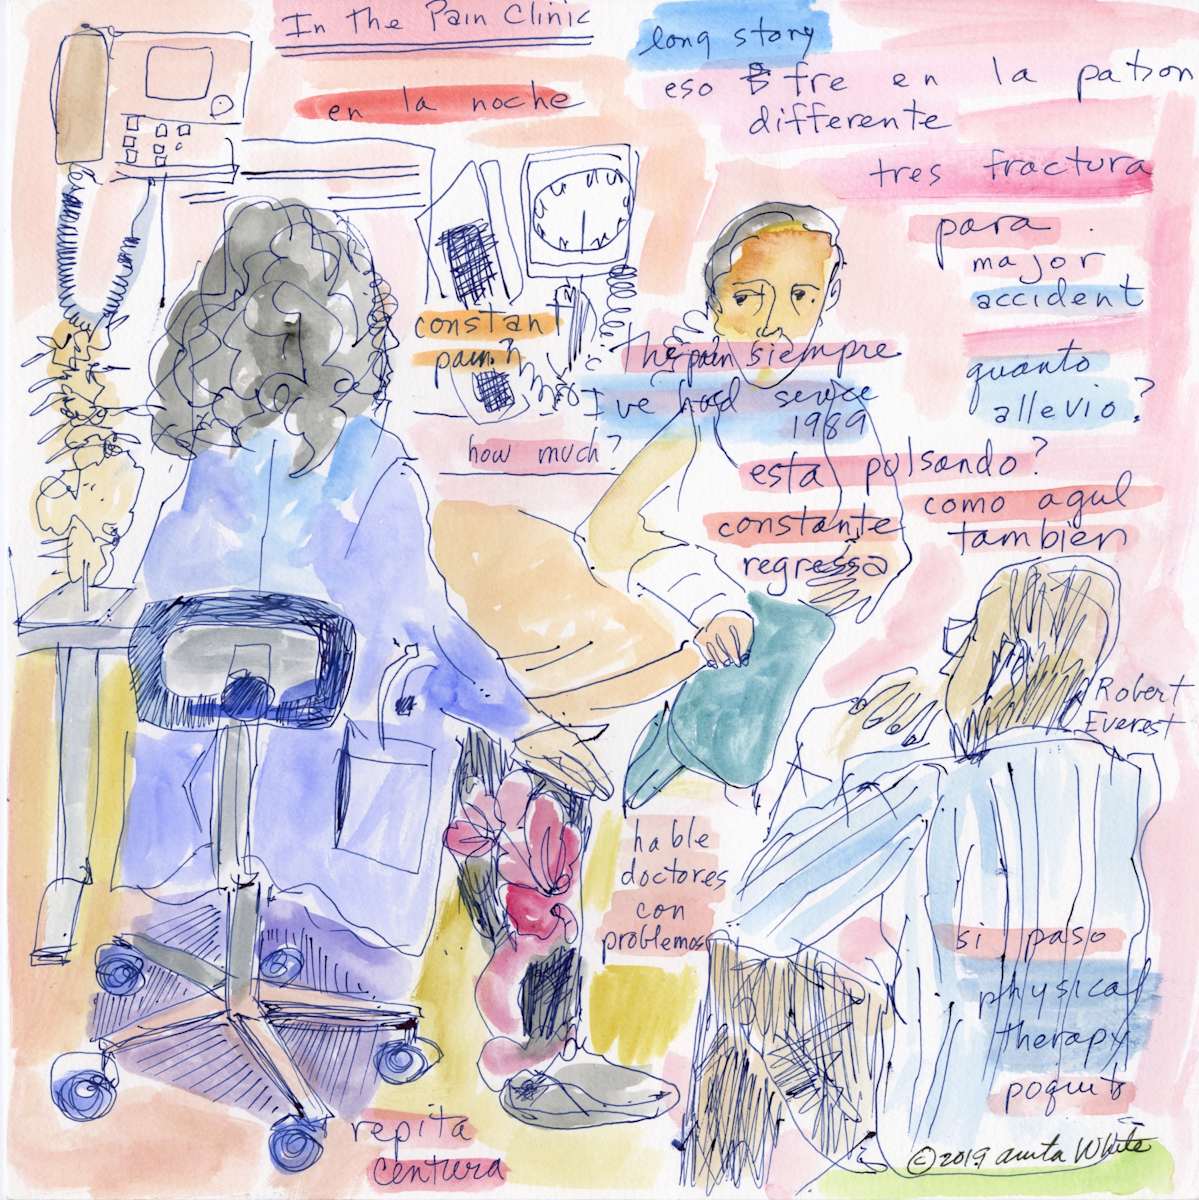 In the Pain Clinic
long story
eso fre en la patson
differente
en la noche
tres fractura
para
major
accident
constant
pain?
The pain siempre
I've had service
1989
quanto
allevio?
how much?
esta pulsando?
constante
regressa
como aqul
tambien
Robert
Everest
hable
doctores
con
problemas
si paso
physical
therapy
poquito
repita
centura
©2019 anita White